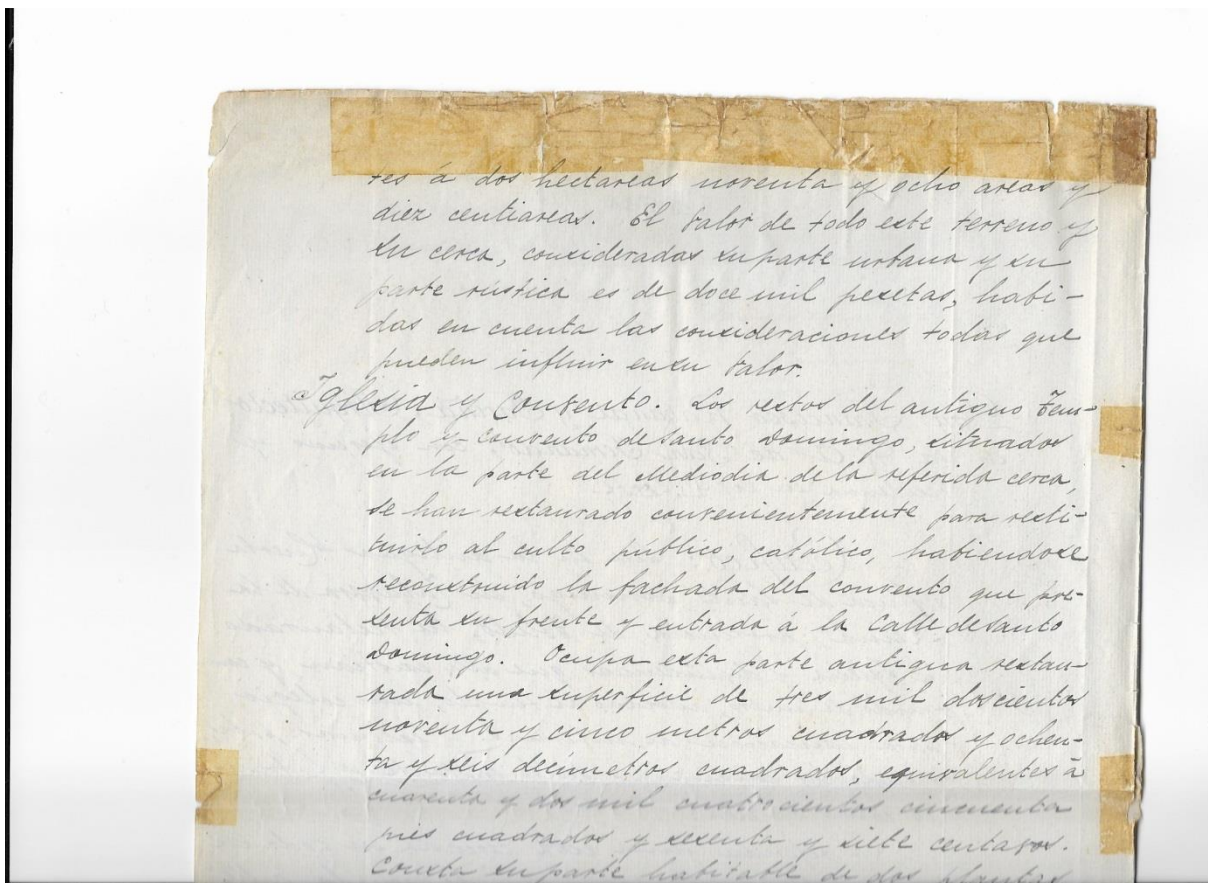 tes á dos hectareas noventa y ocho areas y
diez centiareas. El valor de todo este terreno y
su cerca, consideradas su parte urbana y su
parte rústica es de doce mil pesetas, habi-
das en cuenta las consideraciones todas que
pueden influir en su valor.
Iglesia y Convento. Los restos del antiguo Tem-
plo y convento de Santo Domingo, situados
en la parte del Mediodia de la referida cerca,
se han restaurado convenientemente para resti-
tuirlo al culto público, católico, habiendose
reconstruido la fachada del convento que pre-
senta su frente y entrada á la Calle de Santo
Domingo. Ocupa esta parte antigua restau-
rada una superficie de tres mil doscientos
noventa y cinco metros cuadrados y ochen-
ta y seis decimetros cuadrados, equivalentes á
cuarenta y dos mil cuatrocientos cincuenta
pies cuadrados y sesenta y siete centavos.
Consta su parte habitable de dos plantas